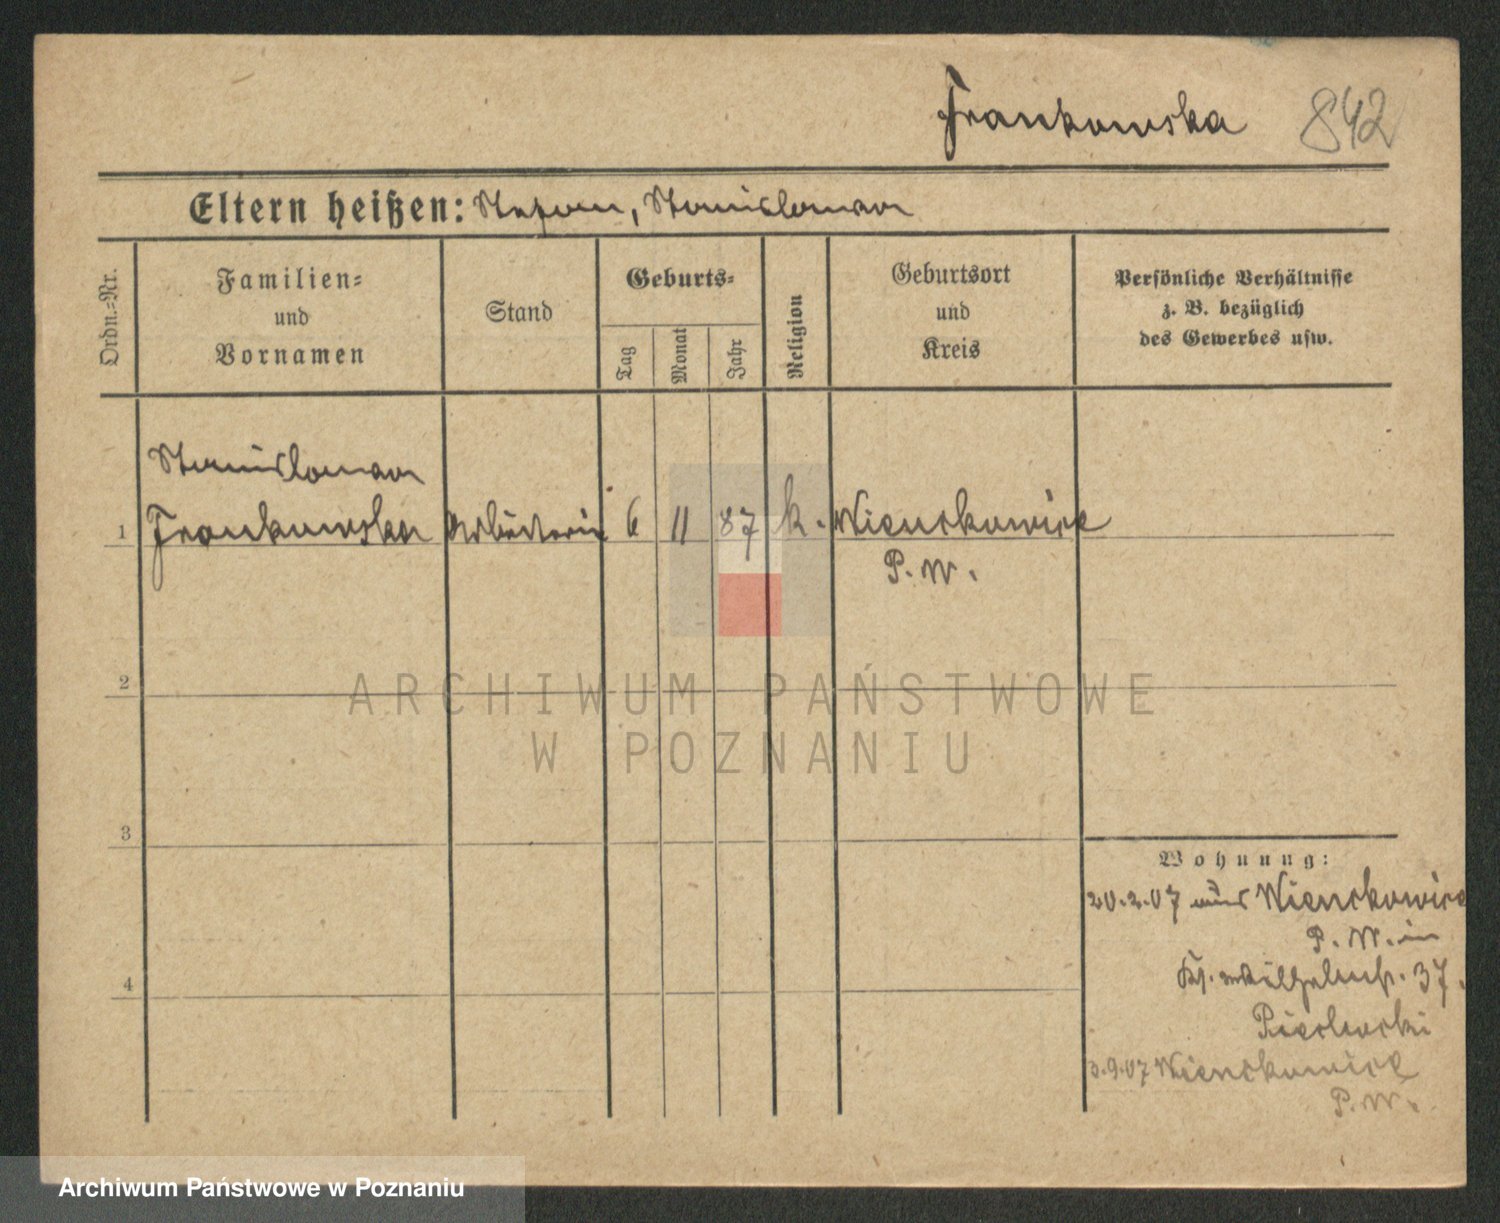 Frankowska 842
Eltern heißen: Stefan, Stanislawa
Ordn.-Nr.
Familien-
und
Vornamen
Stand
Geburts-
Tag
Monat
Jahr
Religion
Geburtsort
und
Kreis
Persönliche Verhältnisse
z. B. bezüglich
des Gewerbes usw.
Stanislawa
1 Frankowska Arbeiterin 6 11 87 k. Wienckowice
P. W.
2
3
4
Wohnung:
20.2.07 aus Wienckowice
P. W. in
37.
3.9.07 Wienckowice
P. W.
ARCHIWUM PAŃSTWOWE
W POZNANIU
Archiwum Państwowe w Poznaniu